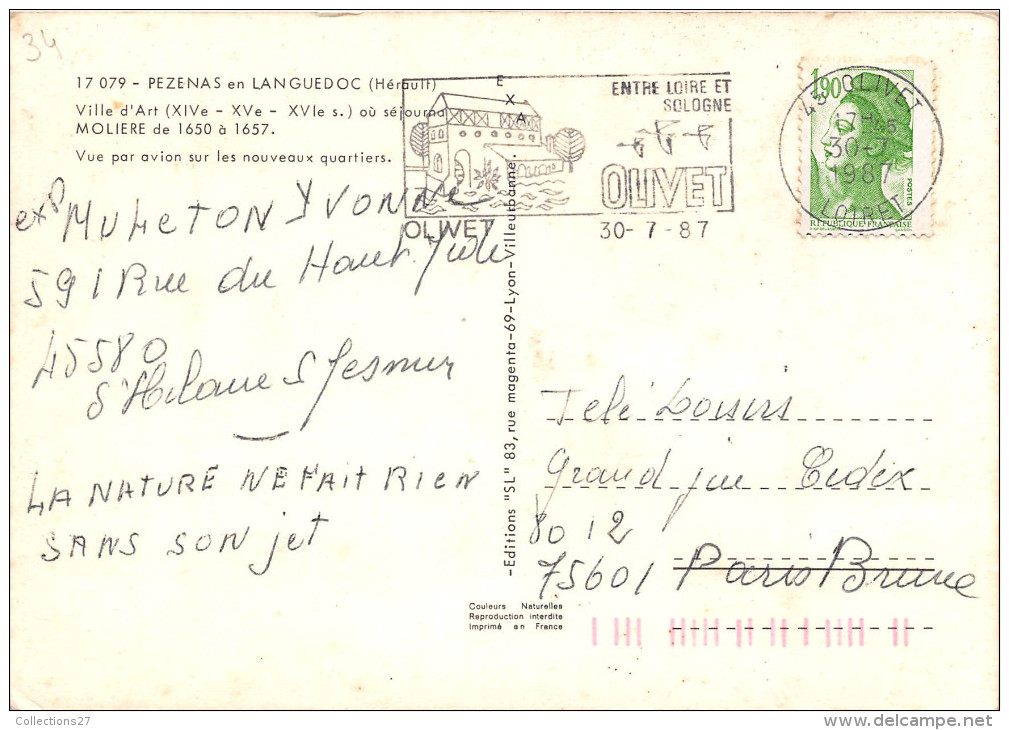 34
17 079 - PEZENAS en LANGUEDOC (Hérault)
Ville d'Art (XIVe - XVe - XVIe s.) où séjourna
MOLIERE de 1650 à 1657.
Vue par avion sur les nouveaux quartiers.
E
X
A
ENTRE LOIRE ET
SOLOGNE
OLIVET
OLIVET
30-7-87
45 OLIVET
17H45
30-7
1987
LOIRET
1,90
POSTES
REPUBLIQUE FRANÇAISE
exp MULETON YVONNE
591 Rue du Haut
45580
St Hilaire St Mesmin
LA NATURE NE FAIT RIEN
SANS SON jet
-Editions "SL" 83, rue magenta-69-Lyon-Villeurbanne.
Télé Loisirs
Grand jeu Cedex
8012
75601 Paris Brune
Couleurs Naturelles
Reproduction interdite
Imprimé en France
Collections27